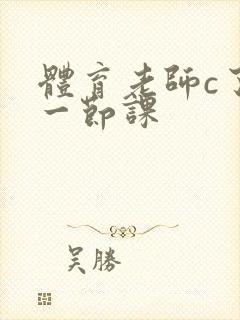 體育老師c了
一節課
吴勝